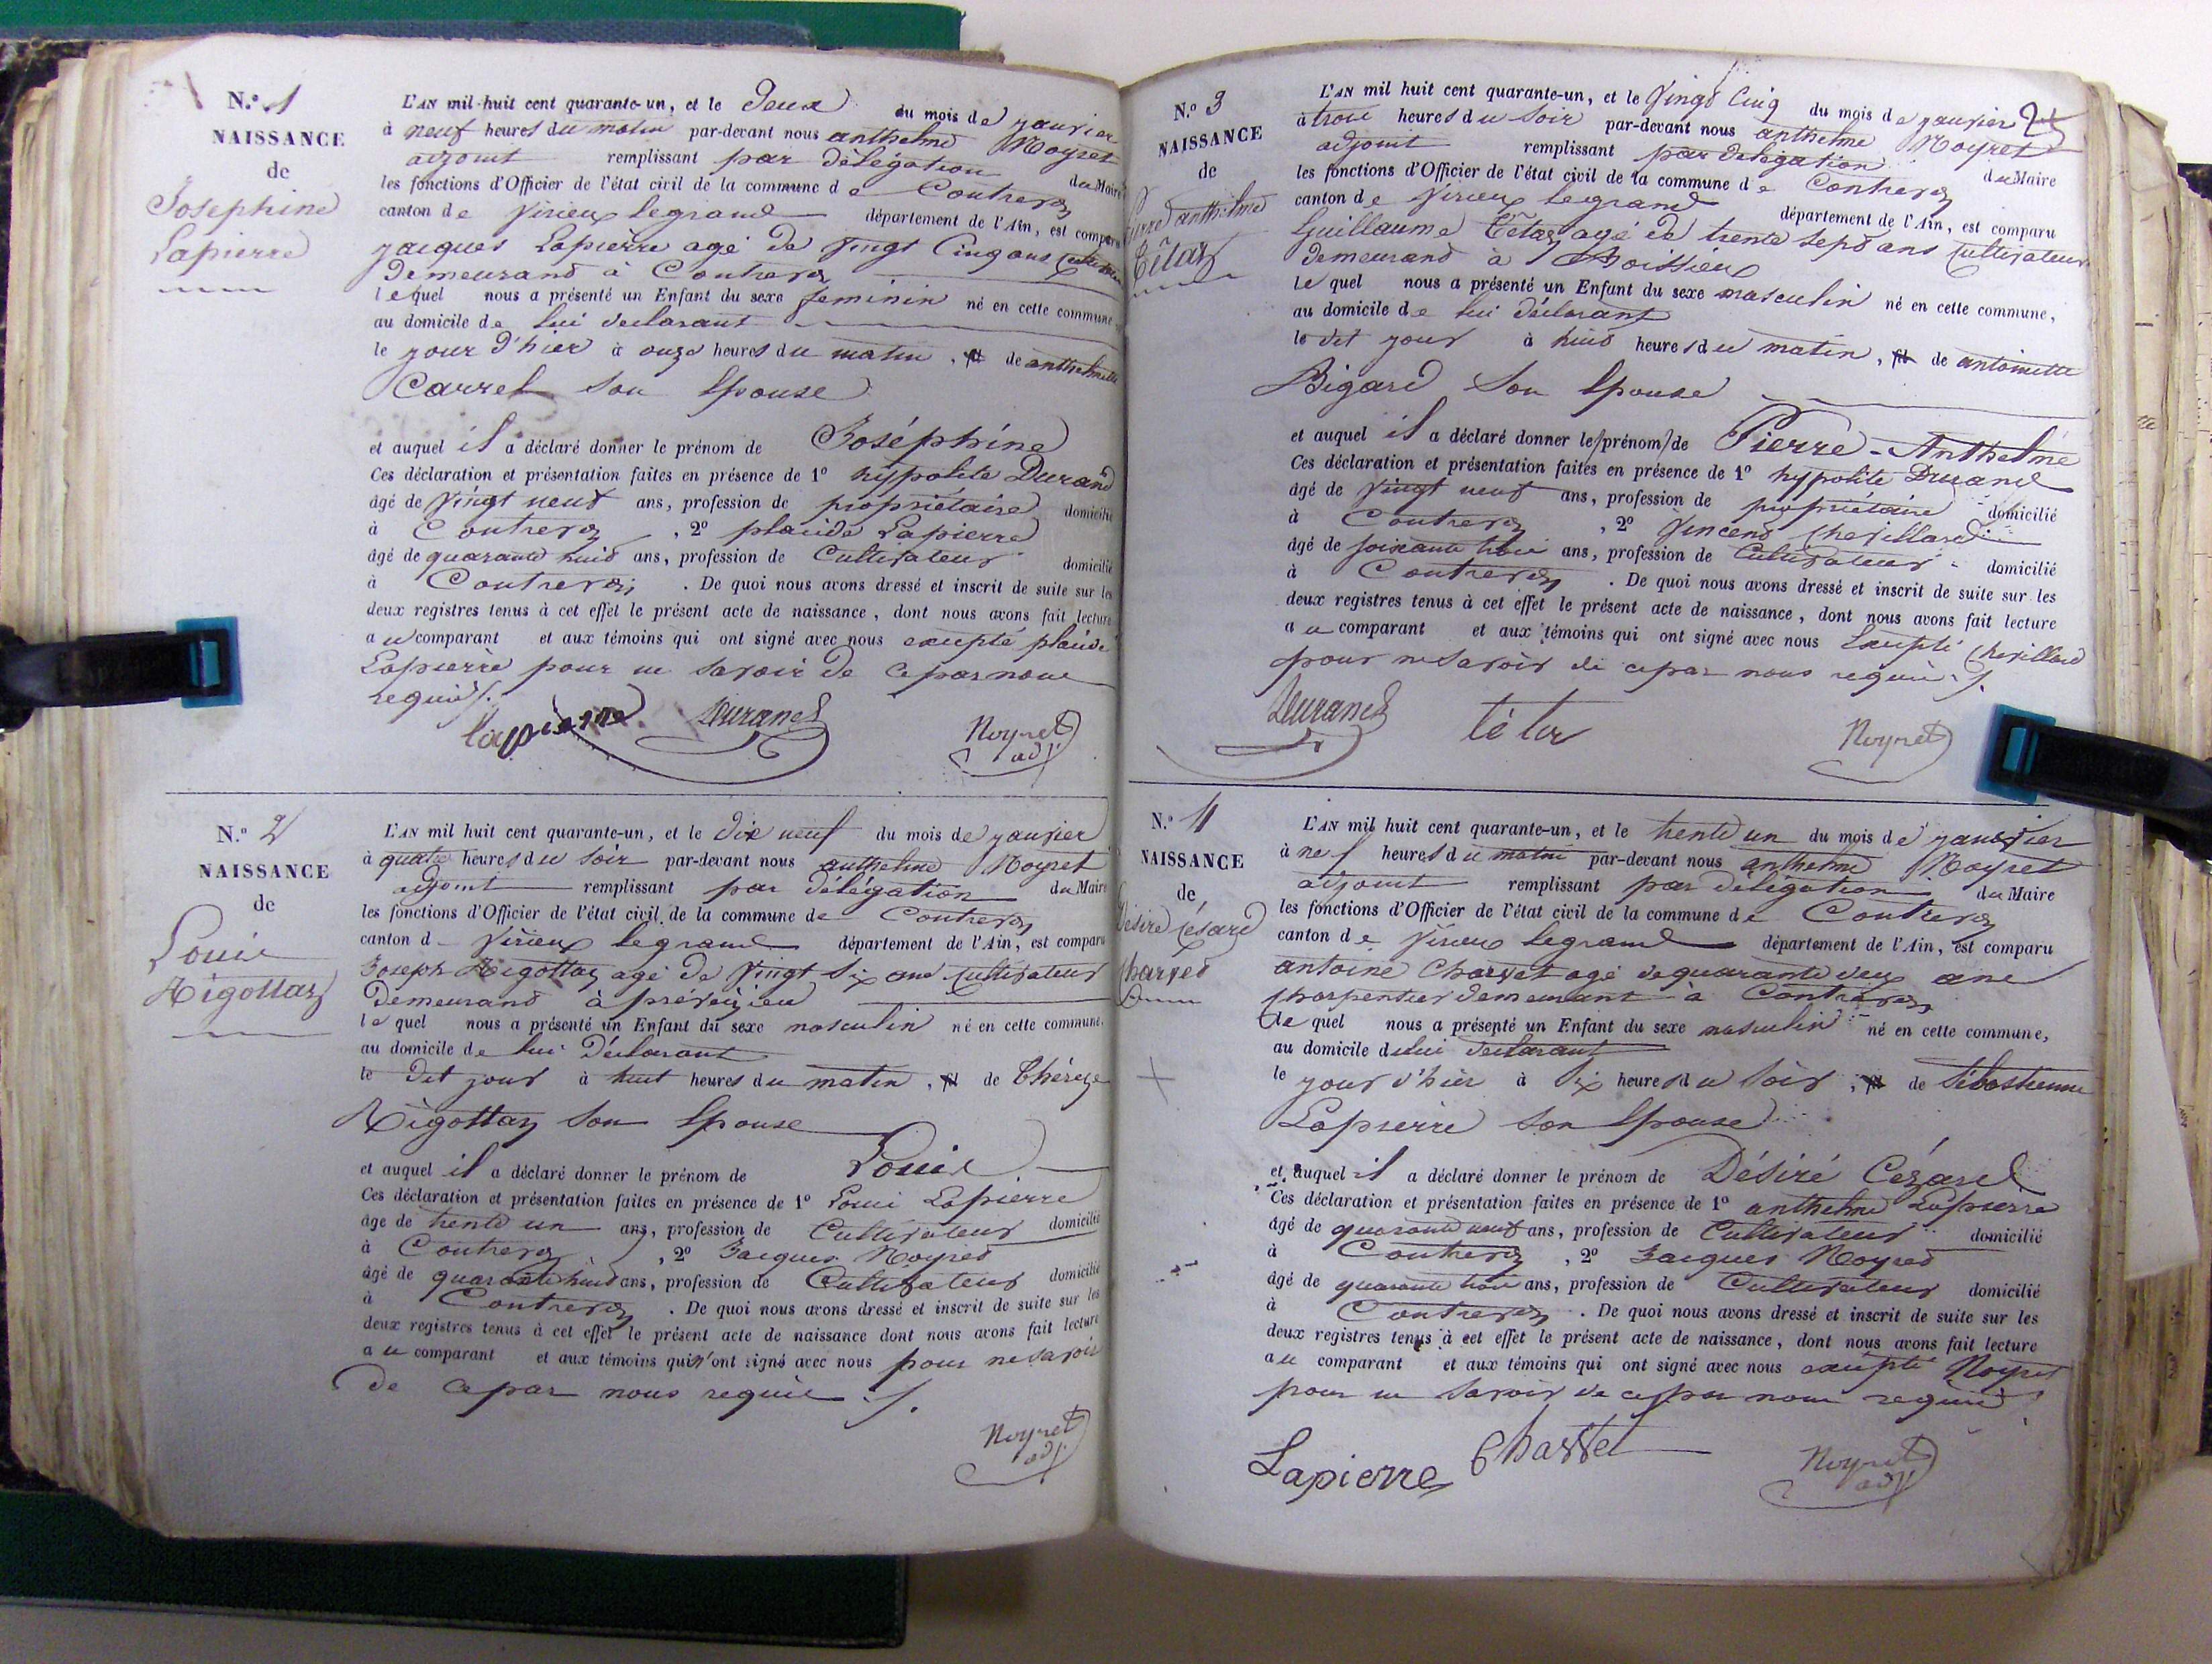 N.º 1
NAISSANCE
de
Josephine
Lapierre
L'AN mil huit cent quarante-un, et le deux du mois de janvier
à neuf heures du matin par-devant nous anthelme Noyret
adjoint remplissant par délégation du Maire
les fonctions d'Officier de l'état civil de la commune de Contrevoz
canton de Virieux legrand département de l'Ain, est comparu
jacques Lapierre agé de vingt Cinq ans
demeurand à Contrevoz
lequel nous a présenté un Enfant du sexe feminin né en cette commune
au domicile de lui declarant
le jour d'hier à onze heures du matin, de anthelmette
Carrel son Epouse
et auquel il a déclaré donner le prénom de Joséphine
Ces déclaration et présentation faites en présence de 1º hypolite Durand
âgé de vingt neuf ans, profession de propriétaire domicilié
à Contrevoz, 2º plaside Lapierre
âgé de quarante huid ans, profession de Cultivateur domicilié
à Contrevoz. De quoi nous avons dressé et inscrit de suite sur les
deux registres tenus à cet effet le présent acte de naissance, dont nous avons fait lecture
au comparant et aux témoins qui ont signé avec nous excepté
Lapierre pour ne savoir de ce par nous
requis.
lapierre Durand Noyret adj
N.º 2
NAISSANCE
de
Louis
Rigottaz
L'AN mil huit cent quarante-un, et le dix neuf du mois de janvier
à quatre heures du soir par-devant nous anthelme Noyret
adjoint remplissant par délégation du Maire
les fonctions d'Officier de l'état civil de la commune de Contrevoz
canton d Virieux legrand département de l'Ain, est comparu
Joseph Rigottaz agé de vingt six ans cultivateur
demeurand à préveizieu
le quel nous a présenté un Enfant du sexe masculin né en cette commune.
au domicile de lui déclarant
le dit jour à huit heures du matin, de Thérèze
Rigottaz son Epouse
et auquel il a déclaré donner le prénom de Louis
Ces déclaration et présentation faites en présence de 1º Loui Lapierre
âgé de trente un ans, profession de Cultivateur domicilié
à Contrevoz, 2º Jacques Noyred
âgé de quarante huid ans, profession de Cultivateur domicilié
à Contrevoz. De quoi nous avons dressé et inscrit de suite sur les
deux registres tenus à cet effet le présent acte de naissance dont nous avons fait lecture
au comparant et aux témoins qui n'ont signé avec nous pour ne savoir
de ce par nous requis.
Noyret adj
N.º 3
NAISSANCE
de
Pierre anthelme
Têtaz
L'AN mil huit cent quarante-un, et le vingt Cinq du mois de janvier
à trois heures du soir par-devant nous anthelme Noyret
adjoint remplissant par délégation du Maire
les fonctions d'Officier de l'état civil de la commune de Contrevoz
canton de Virieux legrand département de l'Ain, est comparu
Guillaume Têtaz agé de trente sept ans Cultivateur
demeurand à Boissieux
le quel nous a présenté un Enfant du sexe masculin né en cette commune,
au domicile de lui déclarant
le dit jour à huid heures du matin, de antoinette
Bigard son Epouse
et auquel il a déclaré donner le prénom de Pierre-Anthelme
Ces déclaration et présentation faites en présence de 1º hypolite Durand
âgé de vingt neuf ans, profession de propriétaire domicilié
à Contrevoz, 2º Vincend Chevillard
âgé de soixante trois ans, profession de Cultivateur domicilié
à Contrevoz. De quoi nous avons dressé et inscrit de suite sur les
deux registres tenus à cet effet le présent acte de naissance, dont nous avons fait lecture
au comparant et aux témoins qui ont signé avec nous Excepté Chevillard
pour ne savoir de ce par nous requis.
Durand Noyret
N.º 4
NAISSANCE
de
Désiré Césard
Charved
L'AN mil huit cent quarante-un, et le trente un du mois de janvier
à nef heures du matin par-devant nous anthelme Noyret
adjoint remplissant par délégation du Maire
les fonctions d'Officier de l'état civil de la commune de Contrevoz
canton de Virieux legrand département de l'Ain, est comparu
antoine Charvet agé de quarante deux ans
charpentier demeurant à Contrevoz
le quel nous a présenté un Enfant du sexe masculin né en cette commune,
au domicile de lui declarant
le jour d'hier à six heures du soir, de Sébastienne
Lapierre son Epouse
et auquel il a déclaré donner le prénom de Désiré Cézard
Ces déclaration et présentation faites en présence de 1º anthelme Lapierre
âgé de quarante neuf ans, profession de Cultivateur domicilié
à Contrevoz, 2º Jacques Noyred
âgé de quarante trois ans, profession de Cultivateur domicilié
à Contrevoz. De quoi nous avons dressé et inscrit de suite sur les
deux registres tenus à cet effet le présent acte de naissance, dont nous avons fait lecture
au comparant et aux témoins qui ont signé avec nous excepté Noyret
pour ne savoir de ce par nous requis
Lapierre Charvet Noyret adj